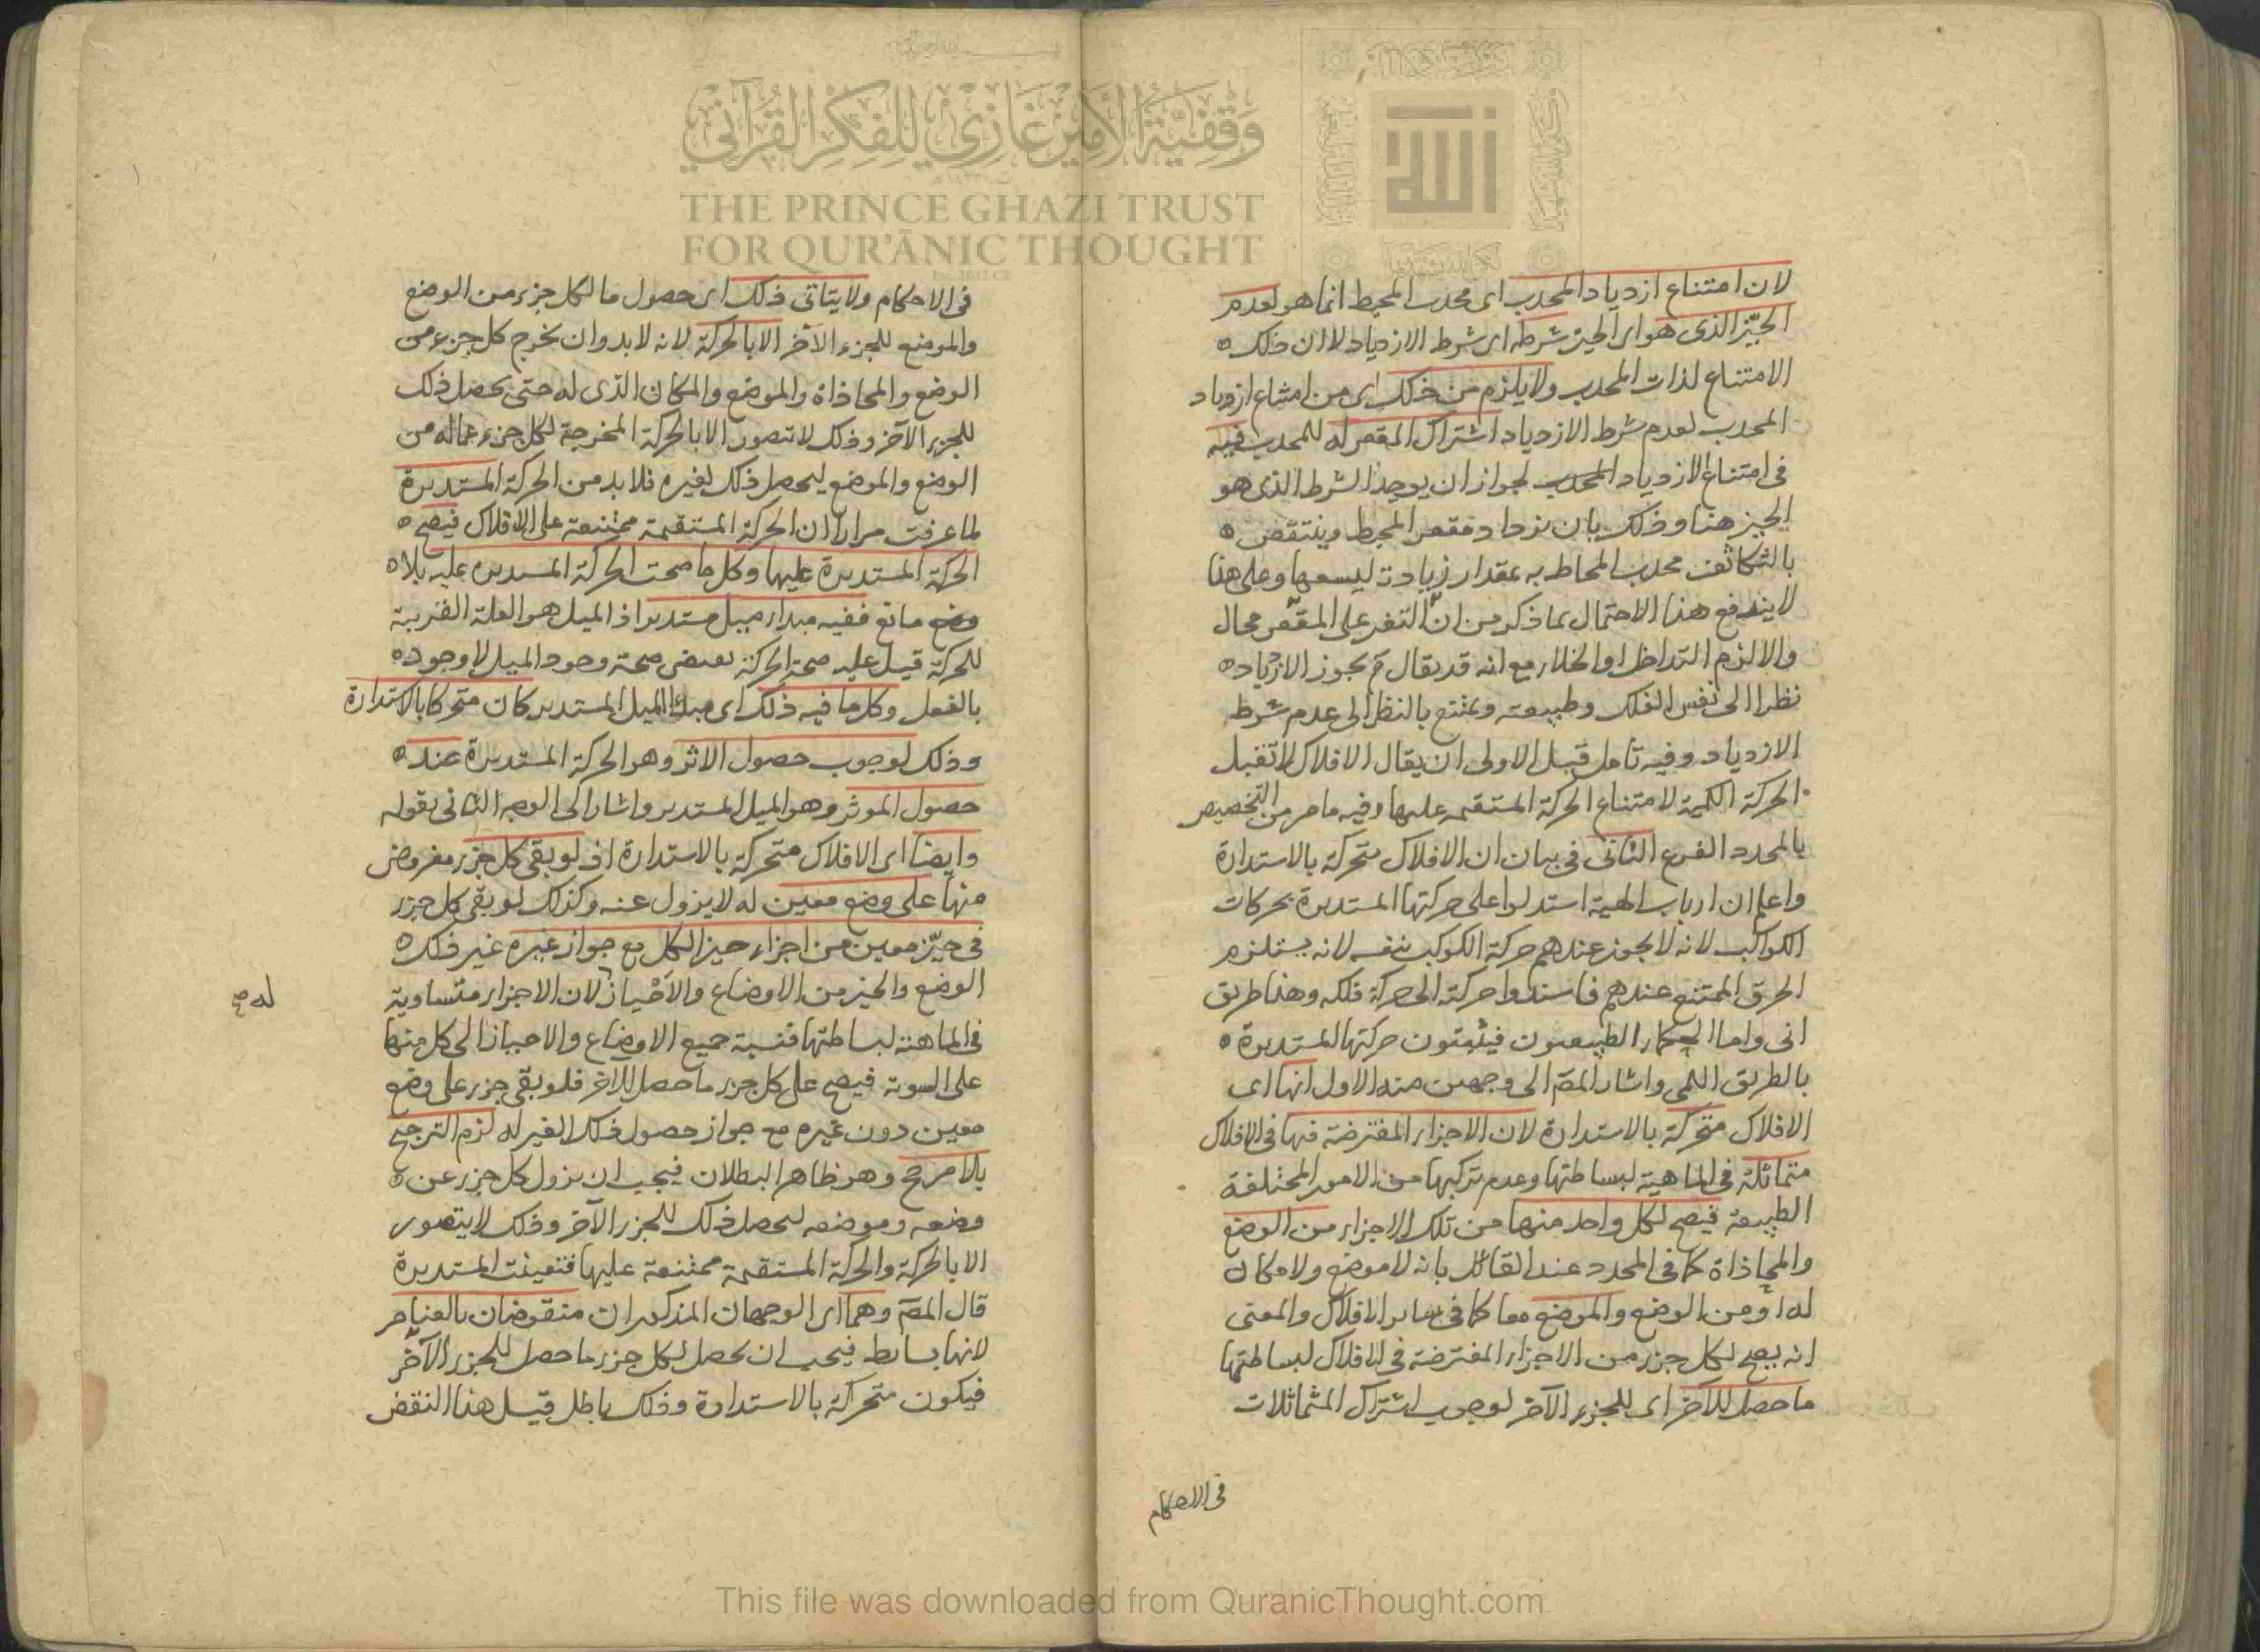 وقفية الأمير غازي للفكر القرآني
THE PRINCE GHAZI TRUST
FOR QUR'ĀNIC THOUGHT
الله
لان امتناع ازدياد المحدب اى محدب المحيط انما هو لعدم
الحيّز الذى هو اى الحيز شرطه اى شرط الازدياد لا ان ذلك
الامتناع لذات المحدب ولا يلزم من ذلك اى من امتناع ازدياد
المحدب لعدم شرط الازدياد اشتراك المقعر له للمحدب فيه
فى امتناع الازدياد المحدب لجواز ان يوجد الشرط الذى هو
الحيز هنا وذلك بان يزداد مقعر المحيط وينتقض
بالتكاثف محدب المحاط به بمقدار زيادته ليسعها وعلى هذا
لا يندفع هذا الاحتمال بما ذكر من انّ التغير على المقعّر محال
والا لزم التداخل او الخلاء مع انه قد يقال لم يجوز الازدياد
نظرا الى نفس الفلك وطبيعته ويمتنع بالنظر الى عدم شرط
الازدياد وفيه تأمل قيل الاولى ان يقال الافلاك لا تقبل
الحركة الكمية لامتناع الحركة المستقيمة عليها وفيه ما مر من التخصيص
بالمحدد الفرع الثانى فى بيان ان الافلاك متحركة بالاستدارة
واعلم ان ارباب الهيئة استدلوا على حركتها المستديرة بحركات
الكواكب لانه لا يجوز عندهم حركة الكوكب بنفسه لانه يستلزم
الخرق الممتنع عندهم فاسندوا حركته الى حركة فلكه وهذا طريق
انى واما الحكماء الطبيعيون فيثبتون حركتها المستديرة
بالطريق اللمى واشار المصّ الى وجهين منه الاول انها اى
الافلاك متحركة بالاستدارة لان الاجزاء المفترضة فيها فى الافلاك
متماثلة فى الماهية لبساطتها وعدم تركبها من الامور المختلفة
الطبيعة فيصح لكل واحد منها من تلك الاجزاء من الوضع
والمحاذاة كما فى المحدد عند القائل بانه لا موضع ولا مكان
له او من الوضع والموضع معا كما فى سائر الافلاك والمعنى
انه يصح لكل جزء من الاجزاء المفترضة فى الافلاك لبساطتها
ما حصل للآخر اى للجزء الآخر لوجوب اشتراك المتماثلات
فى الاحكام
فى الاحكام ولا يتأتى ذلك اى حصول ما لكل جزء من الوضع
والموضع للجزء الآخر الا بالحركة لانه لا بد وان يخرج كل جزء من
الوضع والمحاذاة والموضع والمكان الذى له حتى يحصل ذلك
للجزء الآخر وذلك لا تتصور الا بالحركة المخرجة لكل جزء عماله من
الوضع والموضع ليحصل ذلك لغيره فلا بد من الحركة المستديرة
لما عرفت مرارا ان الحركة المستقيمة ممتنعة على الافلاك فيصح
الحركة المستديرة عليها وكل ما صحت الحركة المستديرة عليه بلا
مانع ففيه مبداء ميل مستدير اذ الميل هو العلة القريبة
للحركة قيل عليه صحة الحركة تقتضى صحة وجود الميل لا وجوده
بالفعل وكل ما فيه ذلك اى مبدا الميل المستدير كان متحركا بالاستدارة
وذلك لوجوب حصول الاثر وهو الحركة المستديرة عند
حصول الموثر وهو الميل المستدير واشار الى الوجه الثانى بقوله
وايضا اى الافلاك متحركة بالاستدارة اذ لو بقى كل جزء مفروض
منها على وضع معين له لا يزول عنه وكذلك لو بقى كل جزء
فى حيّز معين من اجزاء حيز الكل مع جواز غيره غير ذلك
الوضع والحيز من الاوضاع والاحياز لان الاجزاء متساوية
له صح
فى الماهية لبساطتها فنسبة جميع الاوضاع والاحياز الى كل منها
على السوية فيصح على كل جزء ما حصل للآخر فلو بقى جزء على وضع
معين دون غيره مع جواز حصول ذلك الغير له لزم الترجيح
بلا مرجح وهو ظاهر البطلان فيجب ان يزول كل جزء عن
وضعه وموضعه ليحصل ذلك للجزء الآخر وذلك لا يتصور
الا بالحركة والحركة المستقيمة ممتنعة عليها فتعينت المستديرة
قال المصّ وهما اى الوجهان المذكوران منقوضان بالعناصر
لانها بسائط فيجب ان يحصل لكل جزء ما حصل للجزء الآخر
فيكون متحركة بالاستدارة وذلك باطل قيل هذا النقض
This file was downloaded from QuranicThought.com